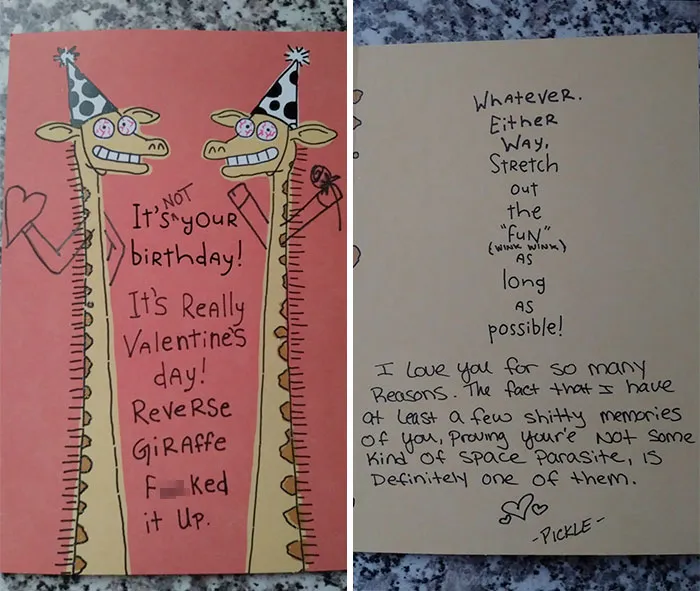 It's NOT your
birthday!
It's Really
Valentine's
day!
Reverse
Giraffe
F  ked
it Up.
Whatever.
Either
Way,
Stretch
out
the
"fun"
(wink wink)
as
long
as
possible!
I Love you for so many
Reasons. The fact that I have
at least a few shitty memories
of you, Proving your'e Not Some
Kind of Space Parasite, is
Definitely one of them.
-PICKLE-